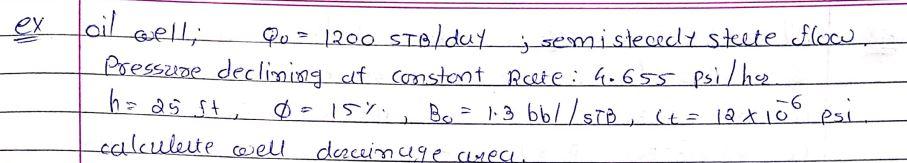 ex oil well; Qo = 1200 STB/day ; semisteady state flow.
Pressure declining at constant Rate : 4.655 psi/hr
h = 25 ft, ϕ = 15%, Bo = 1.3 bbl/STB, Ct = 12 × 10⁻⁶ psi
calculate well drainage area.